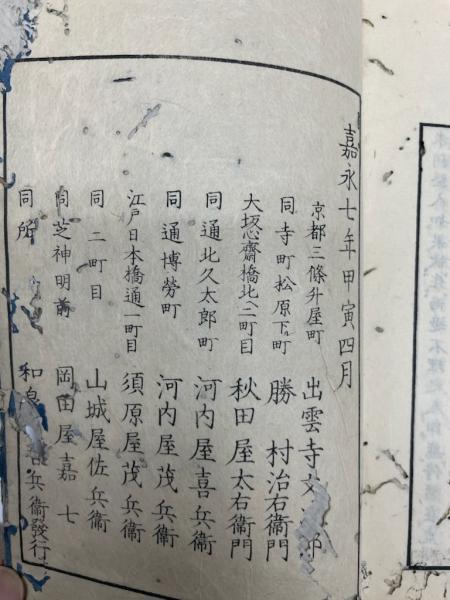 嘉永七年甲寅四月
京都三條升屋町 出雲寺文 郎
同寺町松原下町 勝村治右衛門
大坂心齋橋北二町目 秋田屋太右衛門
同通北久太郎町 河内屋喜兵衞
同通博勞町 河内屋茂兵衞
江戸日本橋通一町目 須原屋茂兵衞
同二町目 山城屋佐兵衞
同芝神明前 岡田屋嘉七
同所 和泉 兵衞發行